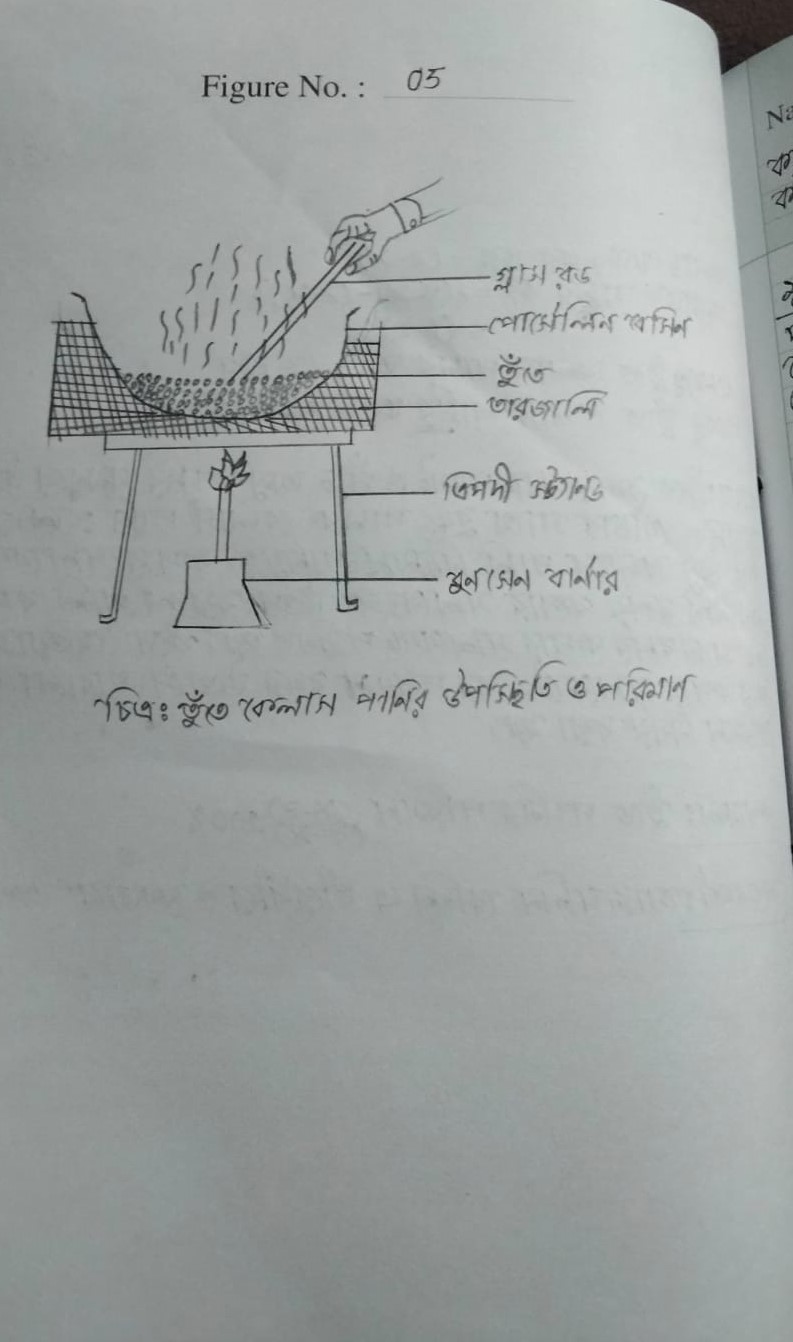 Figure No. : 05
গ্লাস রড
পোর্সেলিন বেসিন
তুঁতে
তারজালি
ত্রিপদী স্ট্যান্ড
বুনসেন বার্নার
চিত্রঃ তুঁতে কেলাস পানির উপস্থিতি ও পরিমাণ